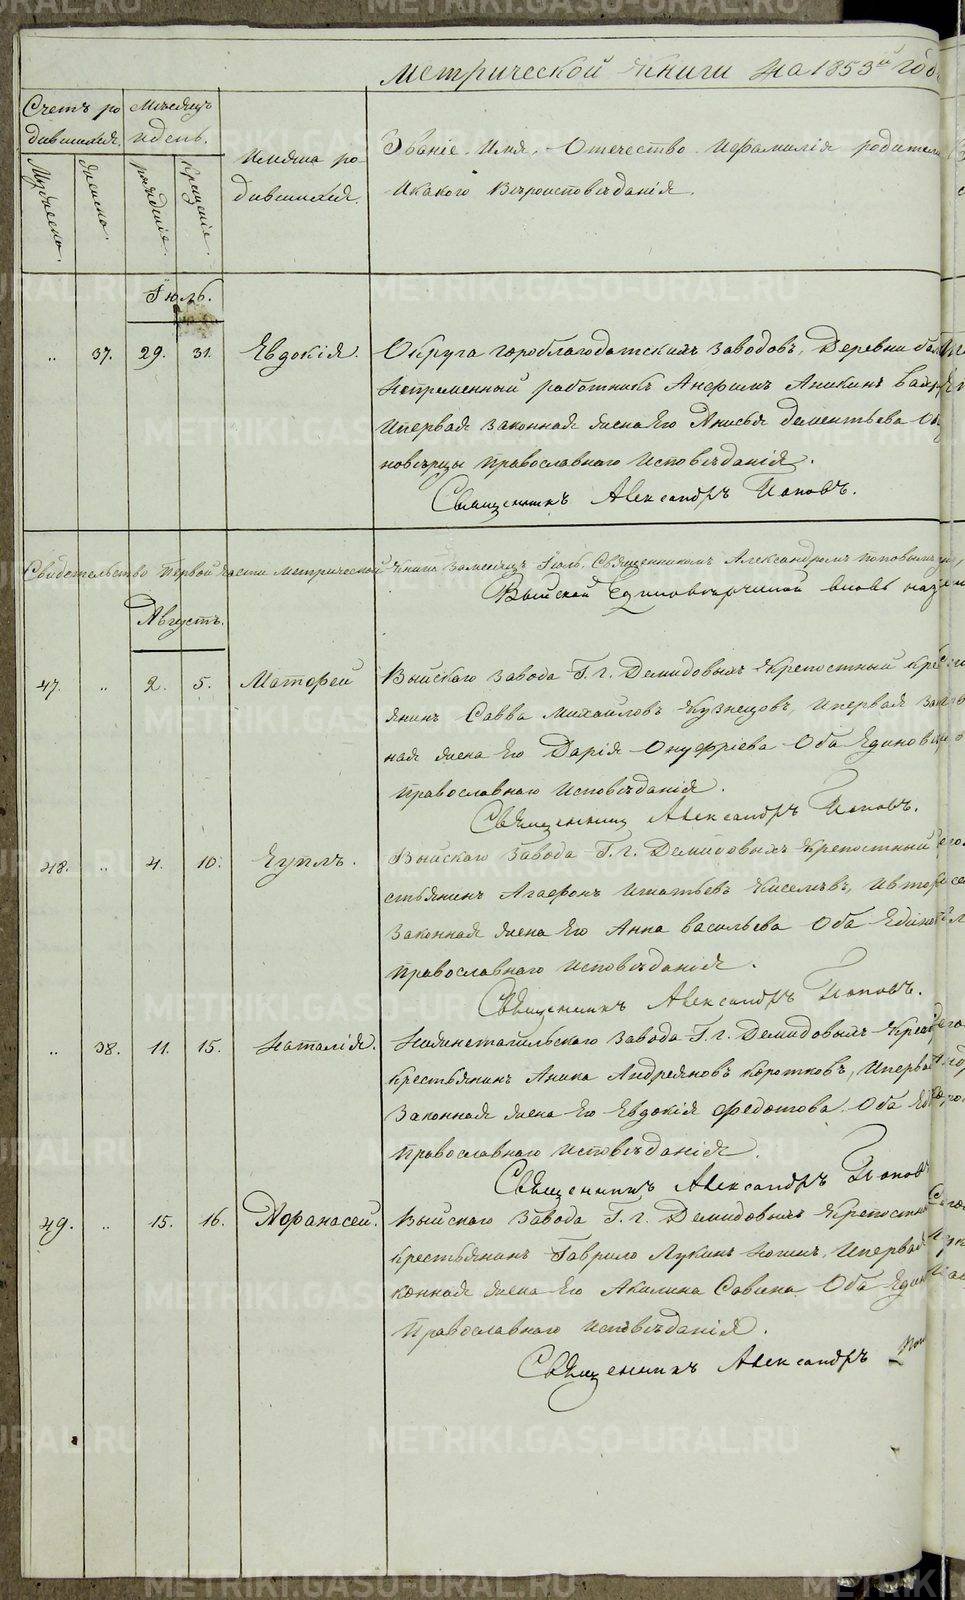 Метрической книги на 1853й год
Счетъ ро
дившихся.
Мѣсяцъ
и день.
Мужеска.
Женска.
рожденія.
Крещенія.
Имяна ро
дившихся.
Званіе, Имя, Отечество и фамилія родителей
и какого Вѣроисповѣданія.
Іюль.
„ 37. 29. 31. Евдокія. Округа гороблагодатскихъ заводовъ, Деревни
непременный работникъ Аникинъ
и первая законная жена Его Анисья Дементьева
новѣрцы православнаго исповѣданія.
Священникъ Александръ Поповъ.
Свидетельство Первой части метрической книги за месяцъ Іюль, Священникомъ Александромъ Поповымъ
Выйской Единовѣрческой вновь
Августъ.
47. „ 2. 5. Матфей Выйскаго завода Г. г. Демидовыхъ Крепостный кре
янинъ Савва Михайловъ Кузнецовъ, и первая зак
ная жена Его Дарія Онуфріева Оба Единов
православнаго исповѣданія.
Священникъ Александръ Поповъ.
48. „ 4. 10. Еуплъ. Выйскаго завода Г. г. Демидовыхъ Крепостный
стьянинъ Агафонъ Игнатьевъ Киселевъ, и втор
законная жена Его Анна Васильева Оба Единов
православнаго исповѣданія.
Священникъ Александръ Поповъ.
„ 38. 11. 15. Наталія. Нижнетагильскаго завода Г. г. Демидовыхъ Креп
крестьянинъ Аника Андреяновъ Коротковъ, и перва
законная жена Его Евдокія Федотова Оба Ед
православнаго исповѣданія.
Священникъ Александръ Поповъ
49. „ 15. 16. Афанасей. Выйскаго завода Г. г. Демидовыхъ Крепостн
крестьянинъ Гаврило Лукинъ и первая
конная жена Его Акилина Савина Оба Един
православнаго исповѣданія.
Священникъ Александръ Поп
METRIKI.GASO-URAL.RU